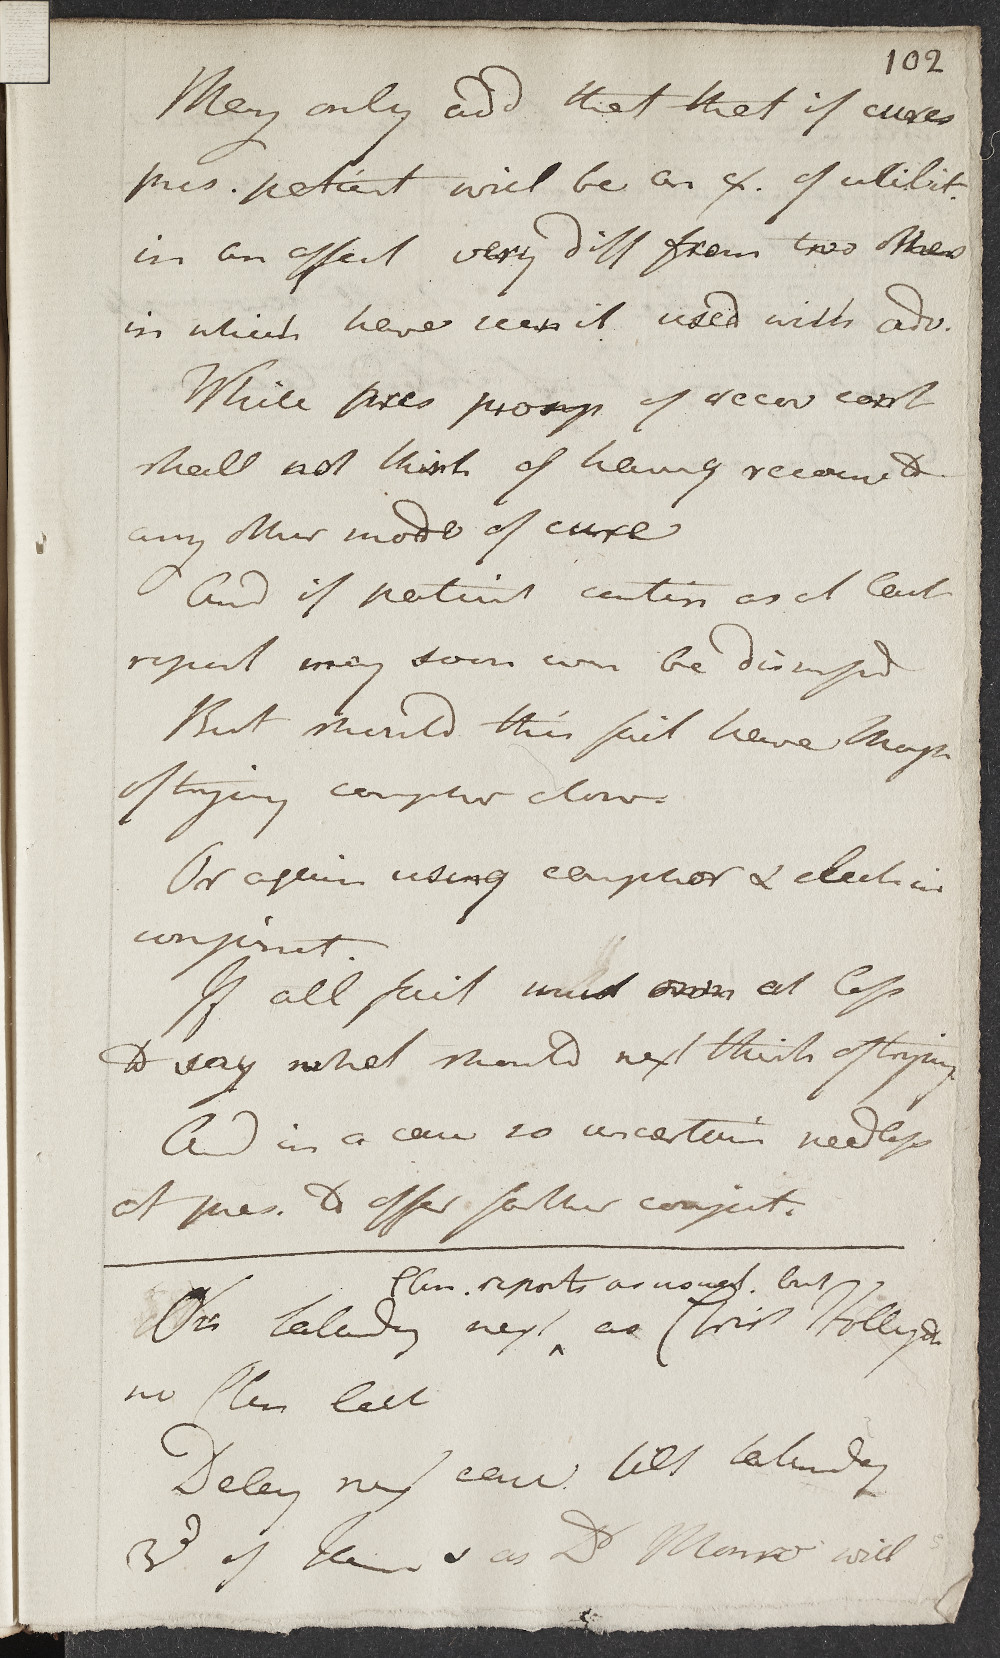 102
May only add that that if cures
pres. patient will be an ex. of utilit.
in an affect very diff from two others
in which have seen it used with adv.
While pres prosp of recov cont
shall not think of having recourse to
any other mode of cure
And if patient contin as at last
report may soon be dismisd
But should this fail have though
of trying camphor alone.
Or again using camphor & electric
conjunct.
If all fail must own at loss
to say what should next think of trying
And in a case so uncertain needless
at pres. to offer farther conject.
Clin. reports as usual. but
On Saturday next ^ as Christ Hollyds
no Clin Lect
Delay next case till Saturday
3d of Janr as Dr Monro will